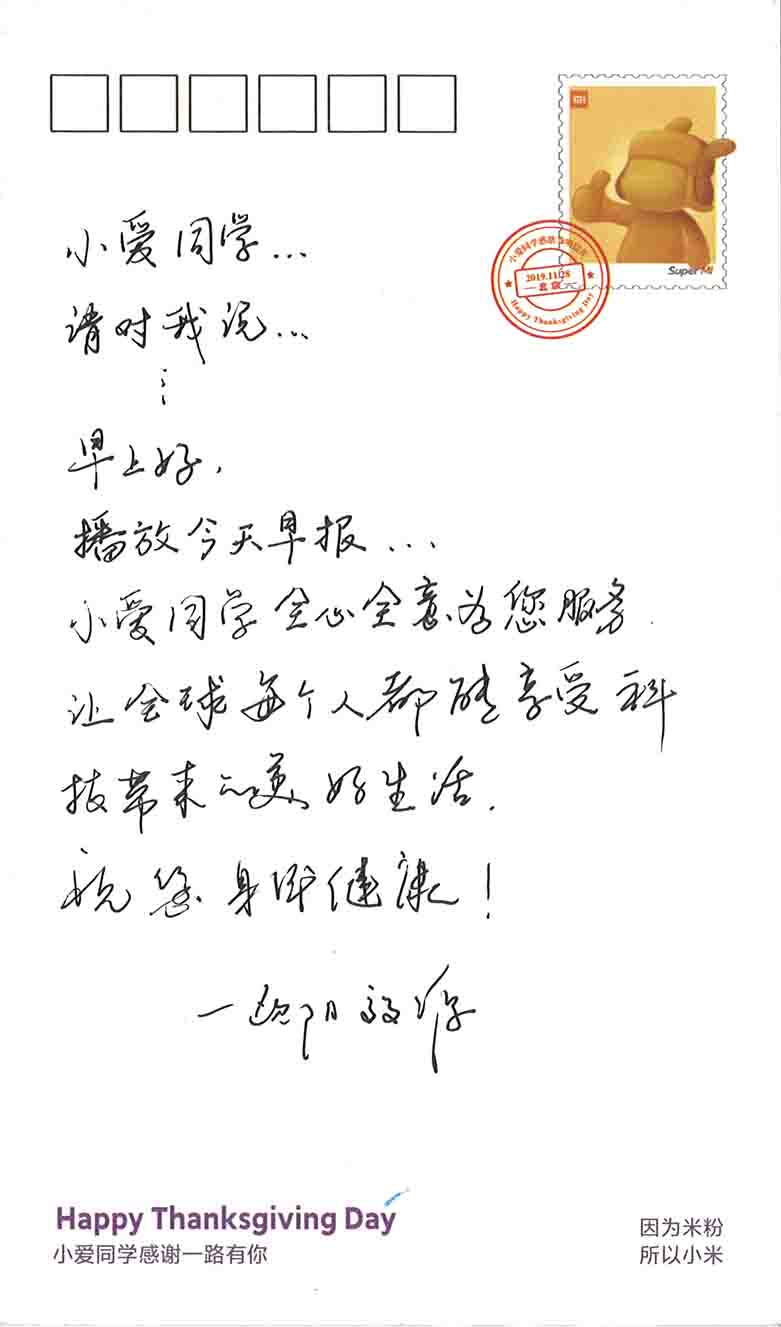 MI
Super Mi
小爱同学感恩
2019.11.28
北京
Happy Thanksgiving Day
小爱同学...
请对我说...
⋮
早上好,
播放今天早报...
小爱同学全心全意为您服务.
让全球每个人都能享受科
技带来的美好生活.
祝您身体健康!
—欧阳
Happy Thanksgiving Day
小爱同学感谢一路有你
因为米粉
所以小米